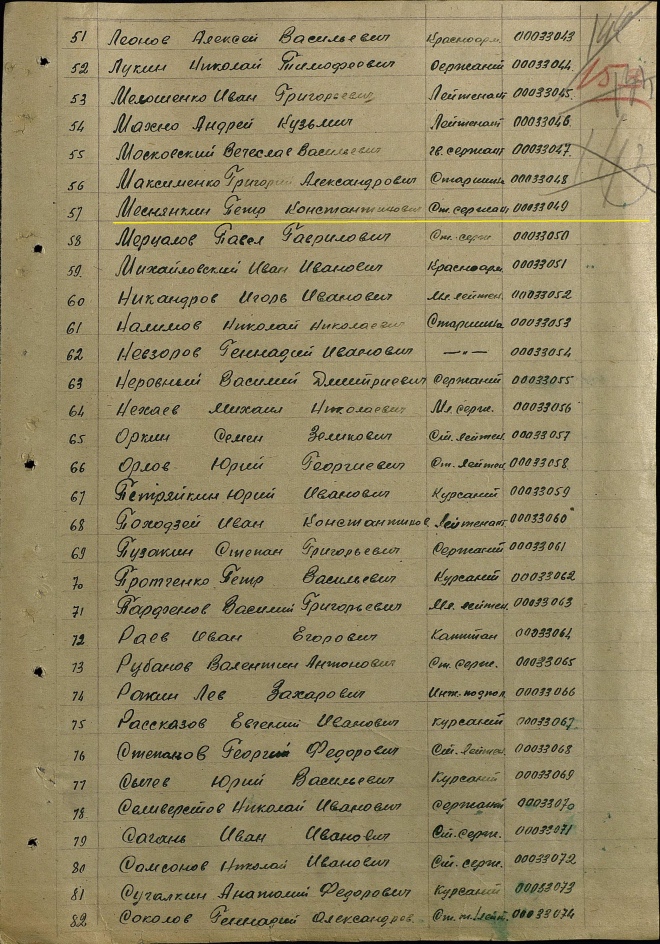 51 Леонов Алексей Васильевич Красноарм. 00033043
52 Лукин Николай Тимофеевич Сержаний 00033044
53 Мелошенко Иван Григорьевич Лейтенант 00033045
54 Махно Андрей Кузьмич Лейтенант 00033046
55 Московский Вечеслав Васильевич гв. сержант 00033047
56 Максименко Григорий Александрович Старшина 00033048
57 Меснянкин Петр Константинович Ст. сержант 00033049
58 Мерцалов Павел Гаврилович Ст. серж. 00033050
59 Михайловский Иван Иванович Красноарм. 00033051
60 Никандров Игорь Иванович Мл. лейтен. 00033052
61 Налимов Николай Николаевич Старшина 00033053
62 Невзоров Геннадий Иванович —"— 00033054
63 Неровный Василий Дмитриевич Сержаний 00033055
64 Нехаев Михаил Николаевич Мл. серж. 00033056
65 Оркин Семен Зеликович Ст. лейтен. 00033057
66 Орлов Юрий Георгиевич Ст. лейтен. 00033058
67 Петряйкин Юрий Иванович Курсаний 00033059
68 Походзей Иван Константинов. Лейтенант 00033060
69 Пузакин Степан Григорьевич Сержаний 00033061
70 Протченко Петр Васильевич Курсаний 00033062
71 Парфенов Василий Григорьевич Мл. лейтен. 00033063
72 Раев Иван Егорович Капитан 00033064
73 Рубанов Валентин Антонович Ст. серж. 00033065
74 Ражин Лев Захарович Инж. подпол. 00033066
75 Рассказов Евгений Иванович Курсаний 00033067
76 Степанов Георгий Федорович Ст. лейтен. 00033068
77 Сычев Юрий Васильевич Курсаний 00033069
78 Селиверстов Николай Иванович Сержаний 00033070
79 Сагань Иван Иванович Ст. серж. 00033071
80 Самсонов Николай Иванович Ст. серж. 00033072
81 Сучалкин Анатолий Федорович Курсаний 00033073
82 Соколов Геннадий Александров. Ст. т. лейт. 00033074